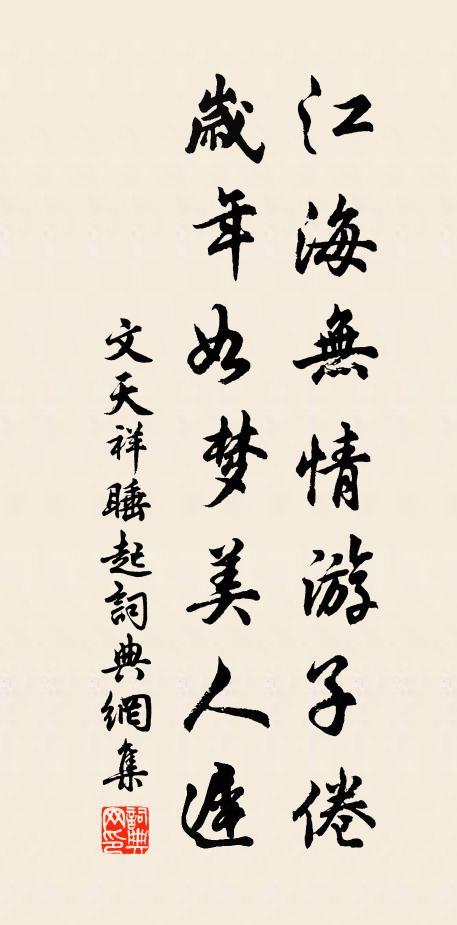 江海無情游子倦
歲年如梦美人遲
文天祥睡起詞典網集
詞典網印